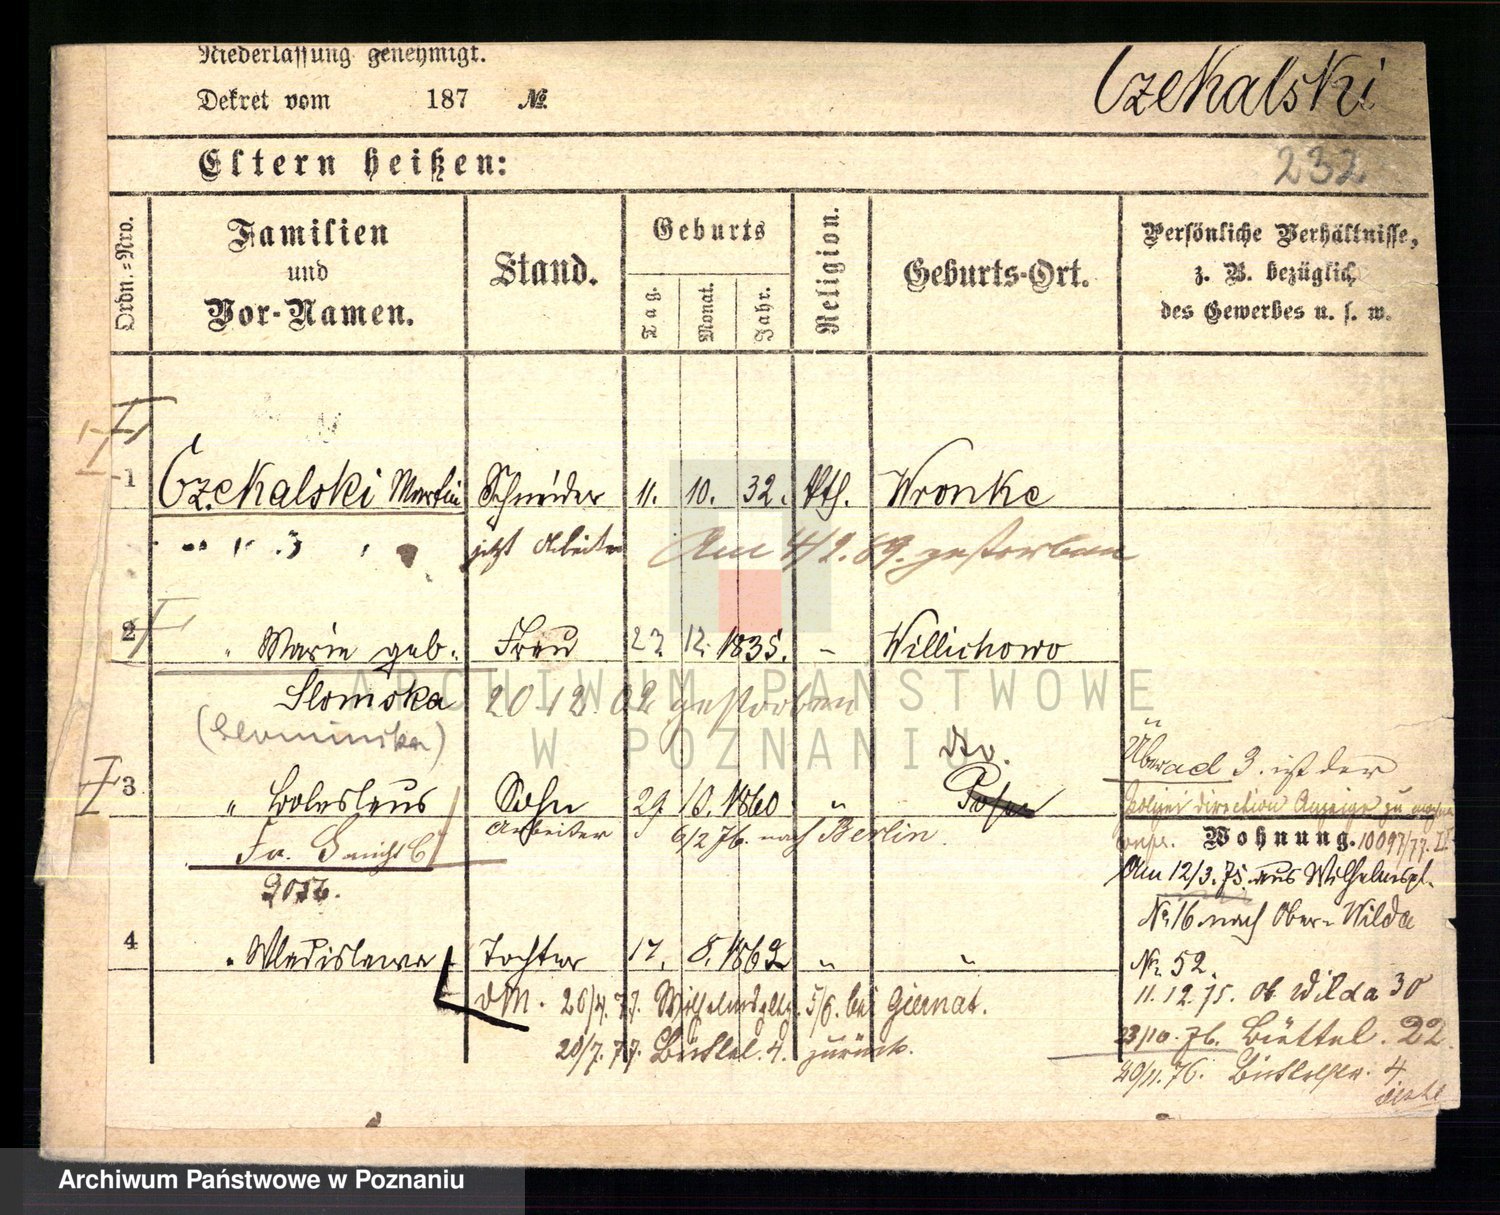 Niederlassung genehmigt.
Dekret vom 187 №
Czekalski
Eltern heißen:
232
Ordn.=Nro.
Familien und Vor-Namen.
Stand.
Geburts
Tag. Monat. Jahr.
Religion.
Geburts-Ort.
Persönliche Verhältnisse,
z. B. bezüglich
des Gewerbes u. s. w.
1 Czekalski Martin Schneider 11. 10. 32. kth. Wronke
jetzt Arbeiter Am 4/2.89. gestorben
2 " Marie geb. Frau 23. 12. 1835. - Willichowo
Slomska 20 12 02 gestorben
(Slominska)
dto.
3 " Boleslaus Sohn 29. 10. 1860 " Posen
Arbeiter 6/2 76. nach Berlin.
Über ad 3. ist der
Polizei direction Anzeige zu
Wohnung. 10097/77. II
Am 12/3.75. aus Wilhelmspl.
No 16 nach Ober-Wilda
No 52.
4 " Wladislawa Tochter 17. 8. 1862 " "
11.12.75. Ob. Wilda 30
20/4.77. 5/6. bei Giernat.
23/10.76. Büttel. 22
20/7.77. Büttel. 4. zurück.
4
ARCHIWUM PAŃSTWOWE
W POZNANIU
Archiwum Państwowe w Poznaniu